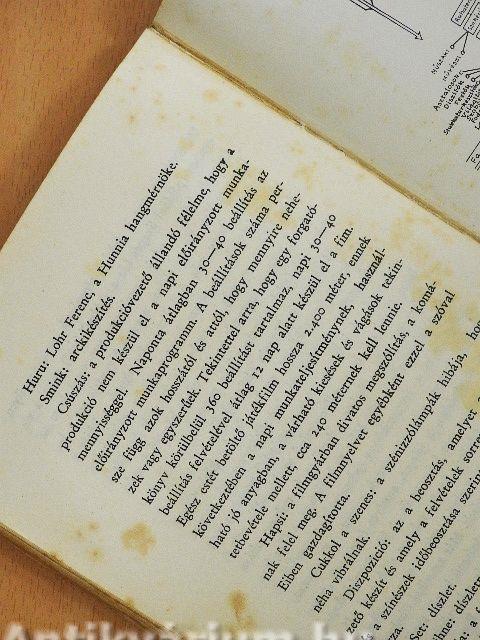 MŰSZAKI
MŰVÉSZI
Asztalosok
Díszítők
Festők
Huru: Lohr Ferenc, a Hunnia hangmérnöke.
Smink: arckikészítés.
Csúszás: a produkcióvezető állandó félelme, hogy a
produkció nem készül el a napi előirányzott munka-
mennyiséggel. Naponta átlagban 30—40 beállítás az
előirányzott munkaprogramm. A beállítások száma per-
sze függ azok hosszától és attól, hogy mennyire nehe-
zek vagy egyszerűek. Tekintettel arra, hogy egy forgató-
könyv körülbelül 360 beállítást tartalmaz, napi 30—40
beállítás felvételével átlag 12 nap alatt készül el a fim.
Egész estét betöltő játékfilm hossza 2.400 méter, ennek
következtében a napi munkateljesítménynek használ-
ható jó anyagban, a várható kiesések és rágások tekin-
tetbevétele mellett, cca 240 méternek kell lennie.
Hapsi: a filmgyárban divatos megszólítás, a komá-
nak felel meg. A filmnyelvet egyébként ezzel a szóval
Eiben gazdagította.
Cukkol a szenes: a szénizzólámpák hibája, ho
néha vibrálnak.
Diszpozíció: az a beosztás, amelyet a
zető készít és amely a felvételek sorre
a színészek időbeosztása szerin
díszlet.
Antikvárium.hu